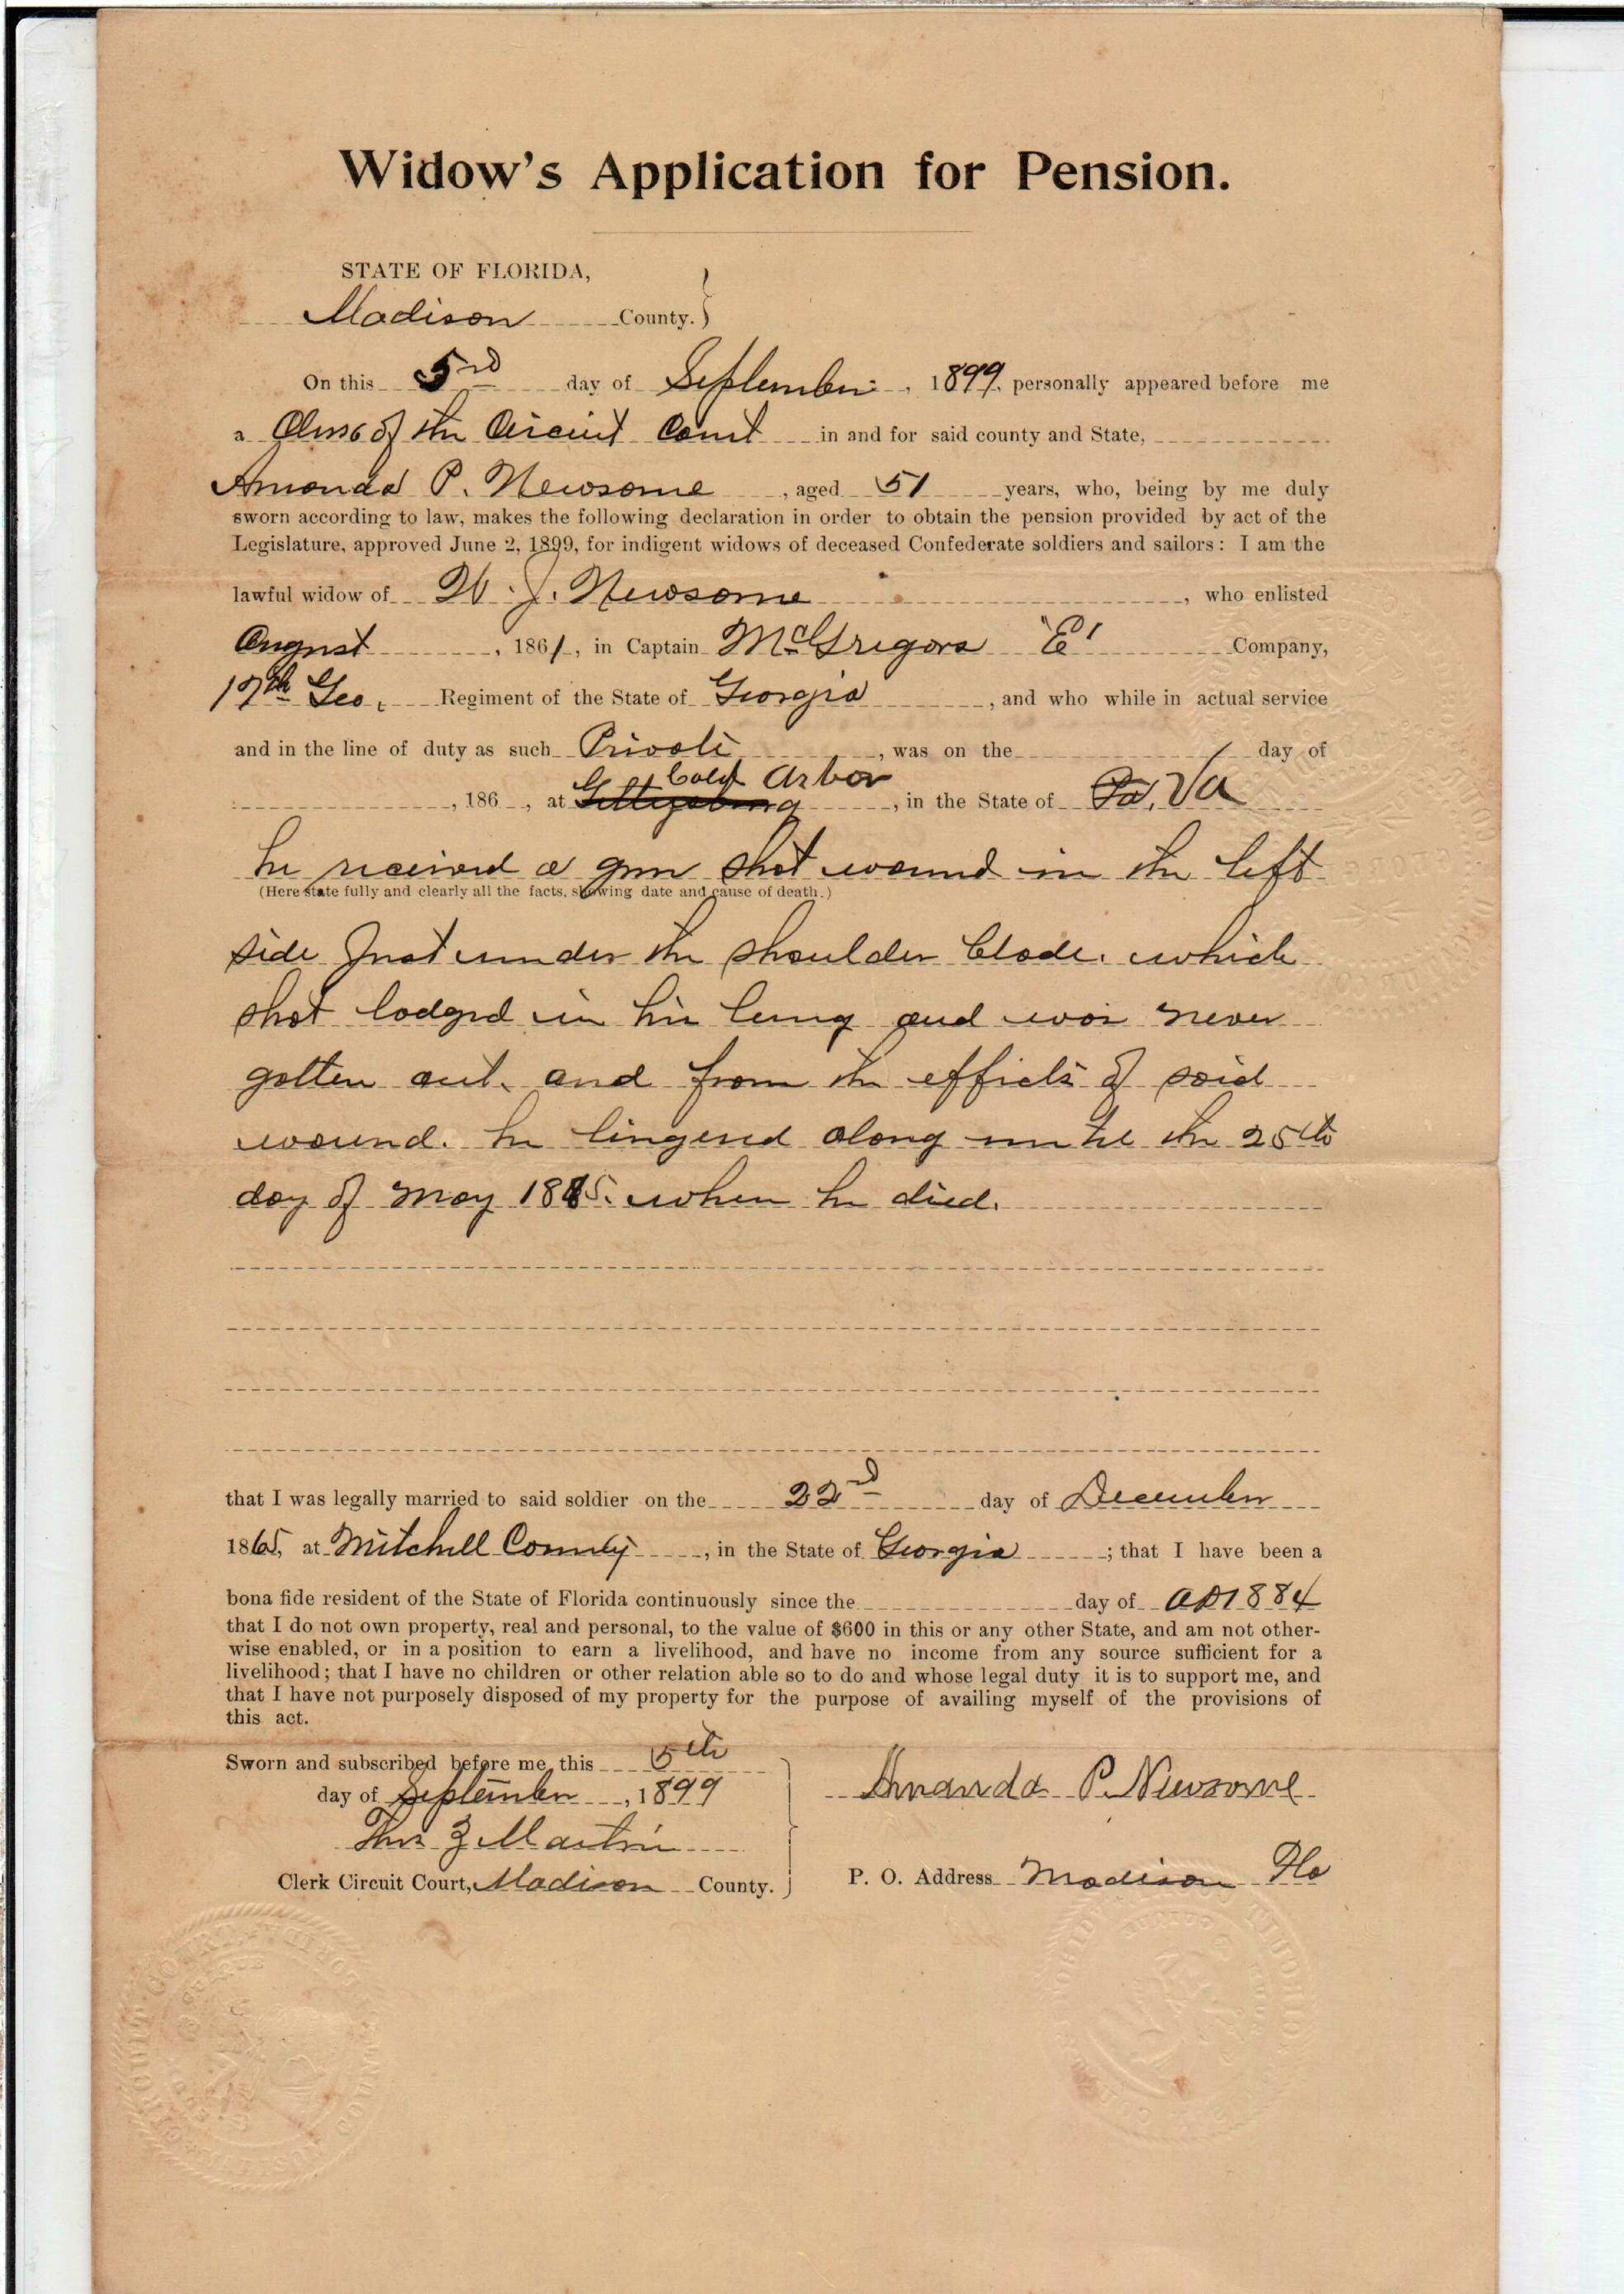 Widow's Application for Pension.
STATE OF FLORIDA,
Madison County.
On this 5rd day of September, 1899, personally appeared before me
a Clerk of the Circuit Court in and for said county and State,
Amanda P. Newsome, aged 51 years, who, being by me duly
sworn according to law, makes the following declaration in order to obtain the pension provided by act of the
Legislature, approved June 2, 1899, for indigent widows of deceased Confederate soldiers and sailors: I am the
lawful widow of W. J. Newsome, who enlisted
August, 1861, in Captain McGregors "E" Company,
17th Geo. Regiment of the State of Georgia, and who while in actual service
and in the line of duty as such Private, was on the day of
Cold Arbor
, 186 , at Gettysburg, in the State of Pa. Va
he received a gun shot wound in the left
(Here state fully and clearly all the facts, showing date and cause of death.)
side Just under the shoulder blade. which
shot lodged in his lung and was never
gotten out. and from the effects of said
wound. he lingered along until the 25th
day of May 1885. when he died.
that I was legally married to said soldier on the 22nd day of December
1865, at Mitchell County, in the State of Georgia; that I have been a
bona fide resident of the State of Florida continuously since the day of AD 1884
that I do not own property, real and personal, to the value of $600 in this or any other State, and am not other-
wise enabled, or in a position to earn a livelihood, and have no income from any source sufficient for a
livelihood; that I have no children or other relation able so to do and whose legal duty it is to support me, and
that I have not purposely disposed of my property for the purpose of availing myself of the provisions of
this act.
Sworn and subscribed before me, this 5th
day of September, 1899
Amanda P. Newsome
Martin
Clerk Circuit Court, Madison County.
P. O. Address Madison Fla